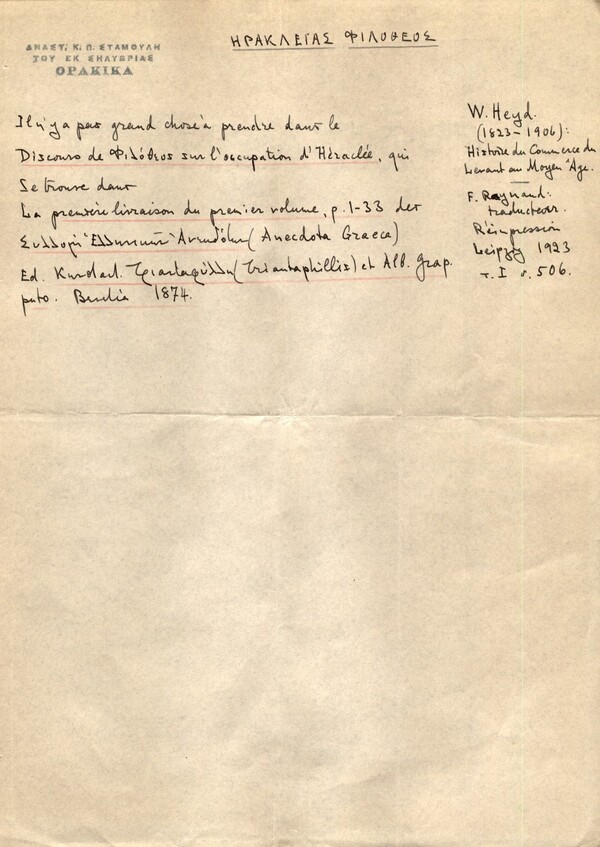 ΑΝΑΣΤ. Κ. Π. ΣΤΑΜΟΥΛΗ
ΤΟΥ ΕΚ ΣΗΛΥΒΡΙΑΣ
ΘΡΑΚΙΚΑ
ΗΡΑΚΛΕΙΑΣ ΦΙΛΟΘΕΟΣ
Il n'y a pas grand chose à prendre dans le
Discours de Φιλόθεος sur l'occupation d'Héraclée, qui
se trouve dans
La première livraison du premier volume, p. 1-33 der
Συλλογή Ἑλληνικῶν Ἀνεκδότων (Anecdota Graeca)
Ed. Τριανταφύλλη (Triantaphillis) et Alb. Grap
puto. 1874.
W. Heyd.
(1823-1906):
Histoire du Commerce du
Levant au Moyen Âge.
F. Raynaud:
traducteur.
Réimpression
Leipzig 1923
τ. I σ. 506.